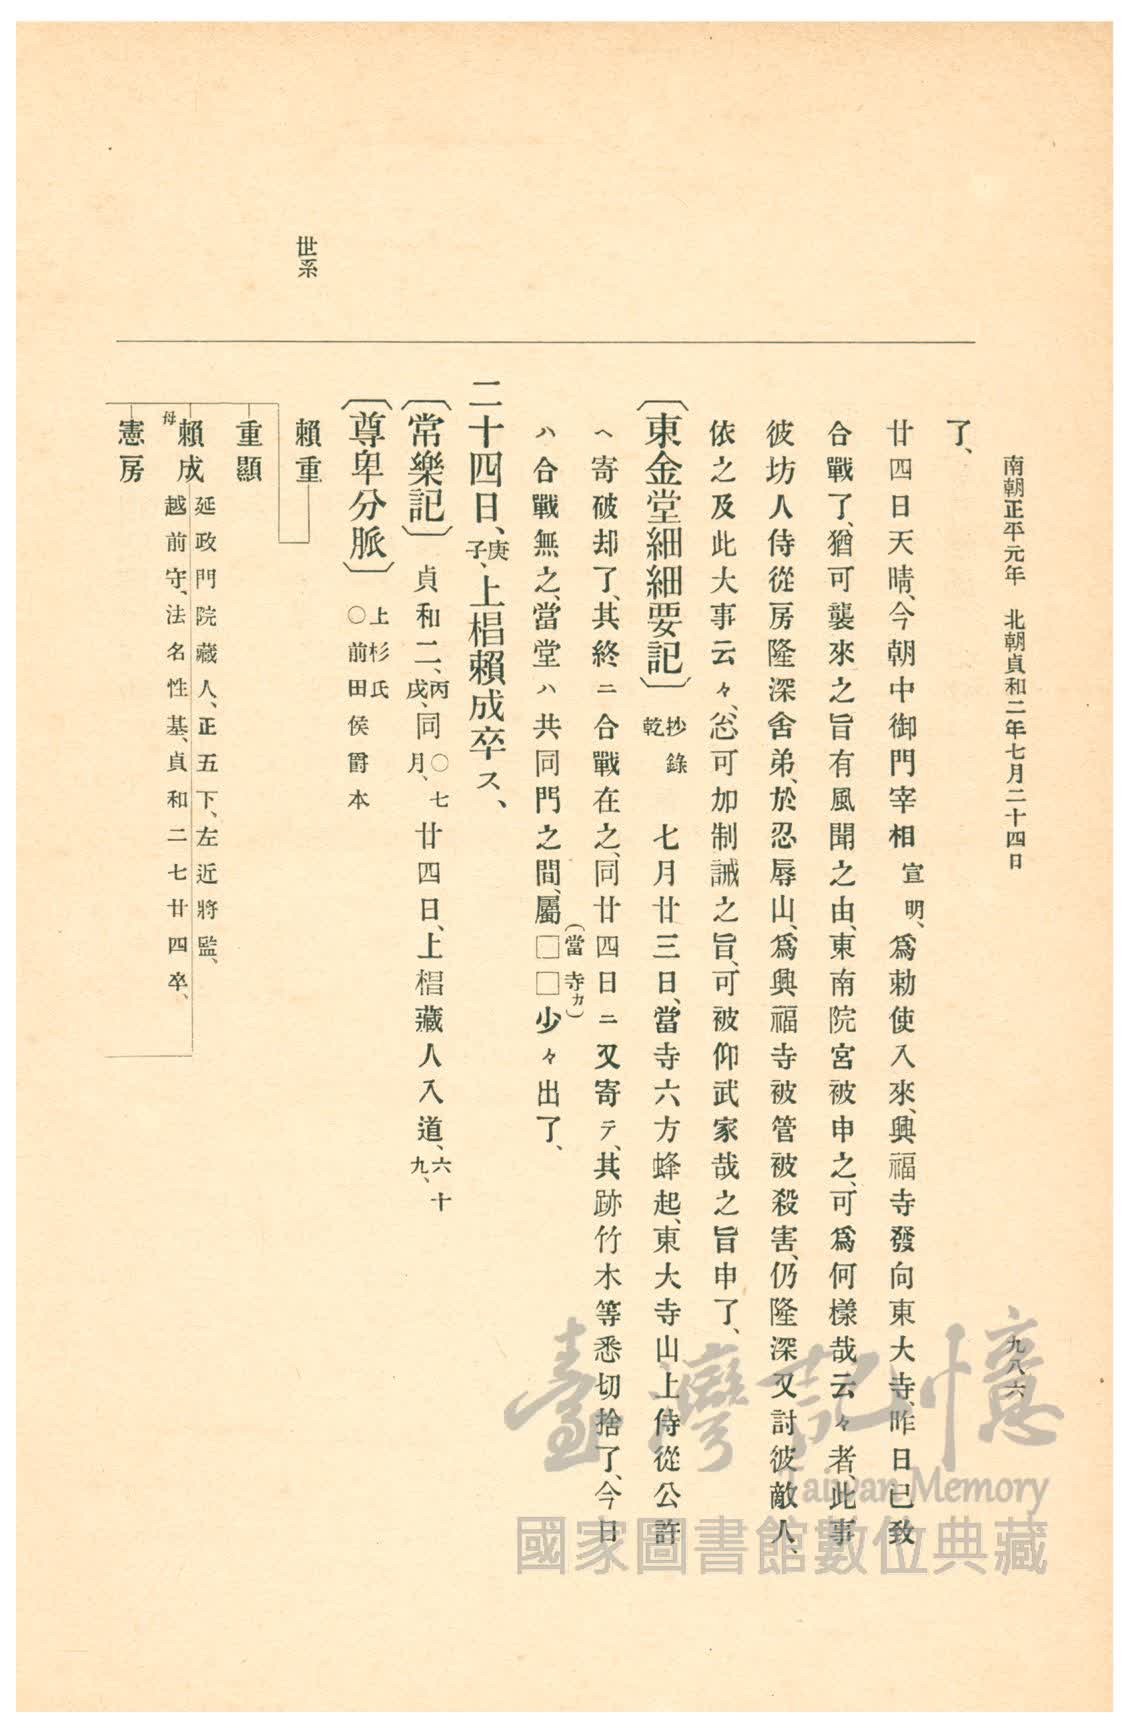 南朝正平元年　北朝貞和二年七月二十四日
九八六
了、
廿四日天晴、今朝中御門宰相宣明、爲勅使入來、興福寺發向東大寺、昨日已致
合戰了、猶可襲來之旨有風聞之由、東南院宮被申之、可爲何樣哉云々者、此事
彼坊人侍從房隆深舍弟、於忍辱山、爲興福寺被管被殺害、仍隆深又討彼敵人、
依之及此大事云々、忩可加制誡之旨、可被仰武家哉之旨申了、
〔東金堂細細要記〕抄錄乾　七月廿三日、當寺六方蜂起、東大寺山上侍從公許
ヘ寄破却了、其終ニ合戰在之、同廿四日ニ又寄テ、其跡竹木等悉切捨了、今日
ハ合戰無之、當堂ハ共同門之間、屬□□少々出了、
（當寺カ）
二十四日、庚子、上椙賴成卒ス、
〔常樂記〕貞和二、丙戌、同○七月、廿四日、上椙藏人入道、六十九、
〔尊卑分脈〕上杉氏○前田侯爵本
世系
賴重
重顯
賴成
母
延政門院藏人、正五下、左近將監、
越前守、法名性基、貞和二七廿四卒、
憲房
臺灣記憶
Taiwan Memory
國家圖書館數位典藏